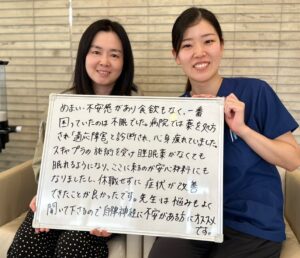 めまい・不安感があり食欲もなく、一番
困っていたのは不眠でした。病院では薬を処方
され「適応障害」と診断され、心身疲れていました。
施術を受け睡眠薬がなくても
眠れるようになり、ここに来るのが安心材料にも
なりましたし、休職せずに症状が改善
できたことが良かったです。先生は悩みもよく
聞いて下さるので自律神経に不安がある方にオススメ
です。